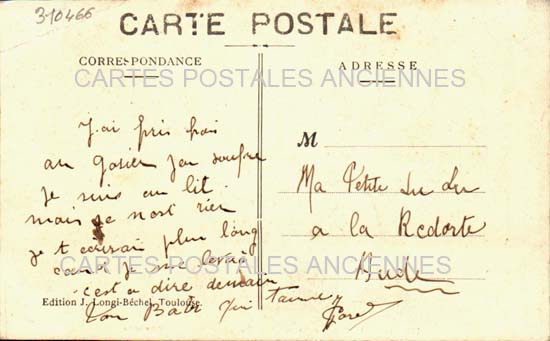 310466
CARTE POSTALE
CORRESPONDANCE
ADRESSE
CARTES POSTALES ANCIENNES
J'ai pris froi
au gosier j'en soufre
je suis au lit
mais se n'est rien
je t ecrirai plus long
quand je me leverai
c'est a dire demain
Ton Bate qui t'aime
M
Ma Petite
a la Redorte
Aude
CARTES POSTALES ANCIENNES
Edition J. Longi-Béchel, Toulouse.